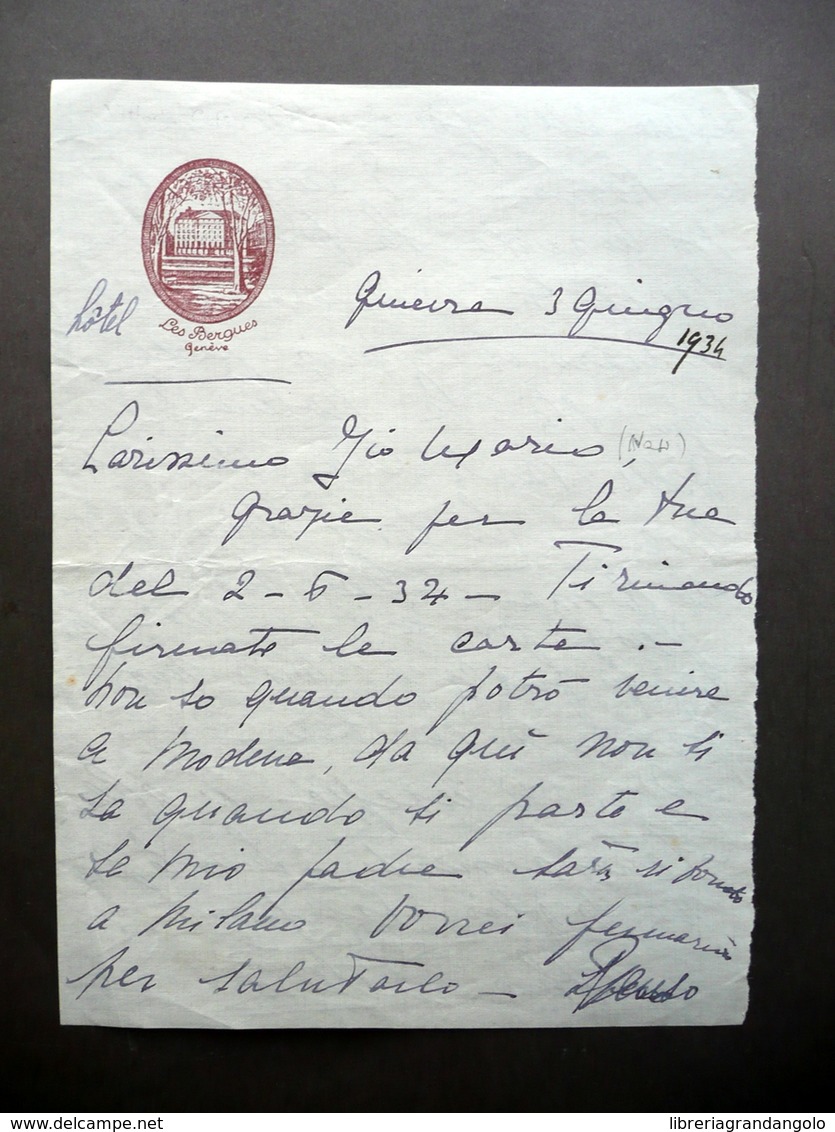 hôtel
Les Bergues
Genève
Ginevra 3 Giugno
1934
Carissimo Gio Mario,
grazie per la tua
del 2-6-34 - Ti rimando
firmate le carte.-
Non so quando potrò venire
a Modena, da quì non si
sa quando si parte e
se mio padre sarà ritornato
a Milano vorrei fermarmi
per salutarlo -
delcampe.net
libreriagrandangolo